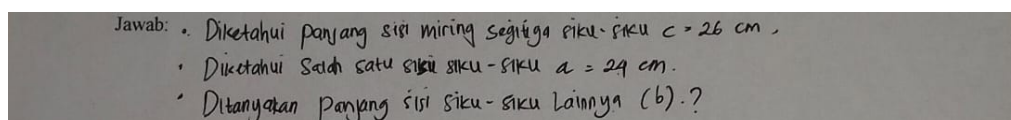 Jawab: • Diketahui panjang sisi miring segitiga siku-siku c = 26 cm,
• Diketahui salah satu sisi siku-siku a = 24 cm.
• Ditanyakan panjang sisi siku-siku lainnya (b).?